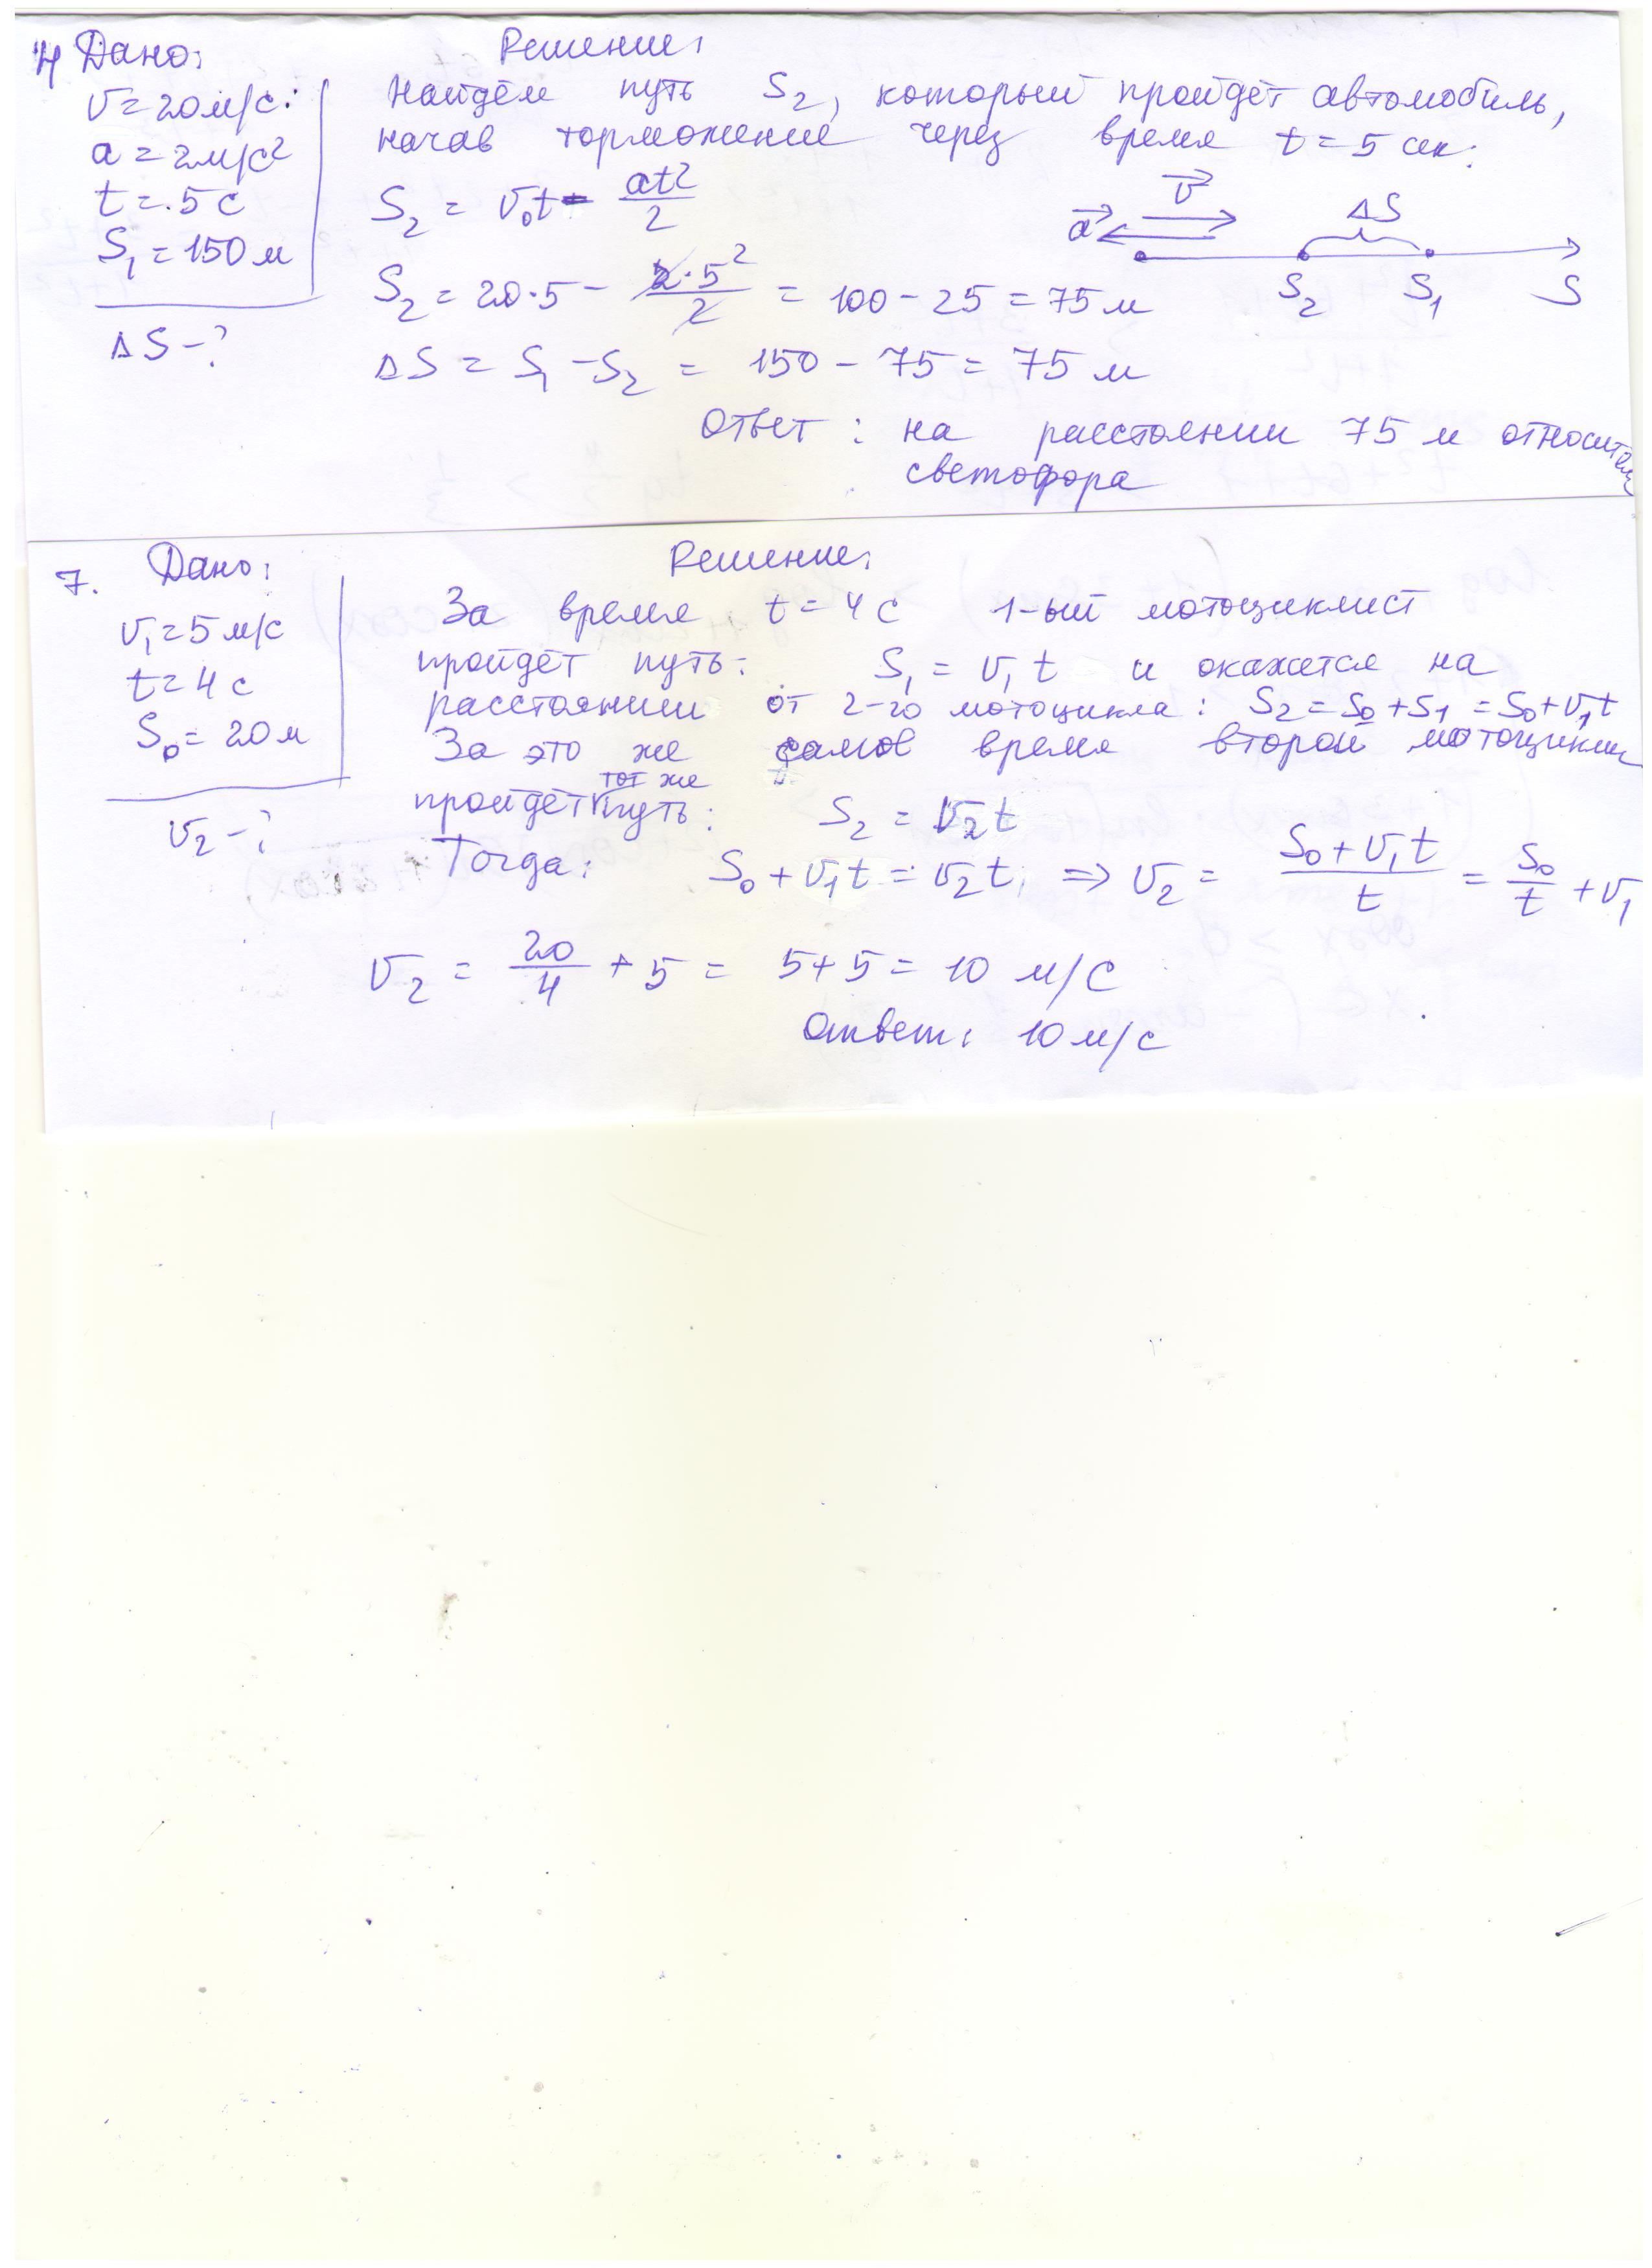 4 Дано:
Решение:
v=20м/с.
a=2м/с²
t=.5с
S₁=150м
ΔS-?
Найдём путь S₂, который пройдёт автомобиль,
начав торможение через время t=5 сек:
S₂ = v₀t - at²/2
v
a
ΔS
S₂ S₁ S
S₂ = 20·5 - 2·5²/2 = 100-25=75м
ΔS = S₁-S₂ = 150-75=75м
Ответ: на расстоянии 75 м относител
светофора
7. Дано:
Решение:
v₁=5м/с
t=4с
S₀=20м
v₂-?
За время t=4с 1-ый мотоциклист
пройдёт путь: S₁=v₁t и окажется на
расстоянии от 2-го мотоцикла: S₂=S₀+S₁=S₀+v₁t
За это же самое время второй мотоцикли
пройдёт тот же путь: S₂=v₂t
Тогда: S₀+v₁t=v₂t, ⇒ v₂ = (S₀+v₁t)/t = S₀/t+v₁
v₂ = 20/4+5 = 5+5=10 м/с
Ответ: 10м/с